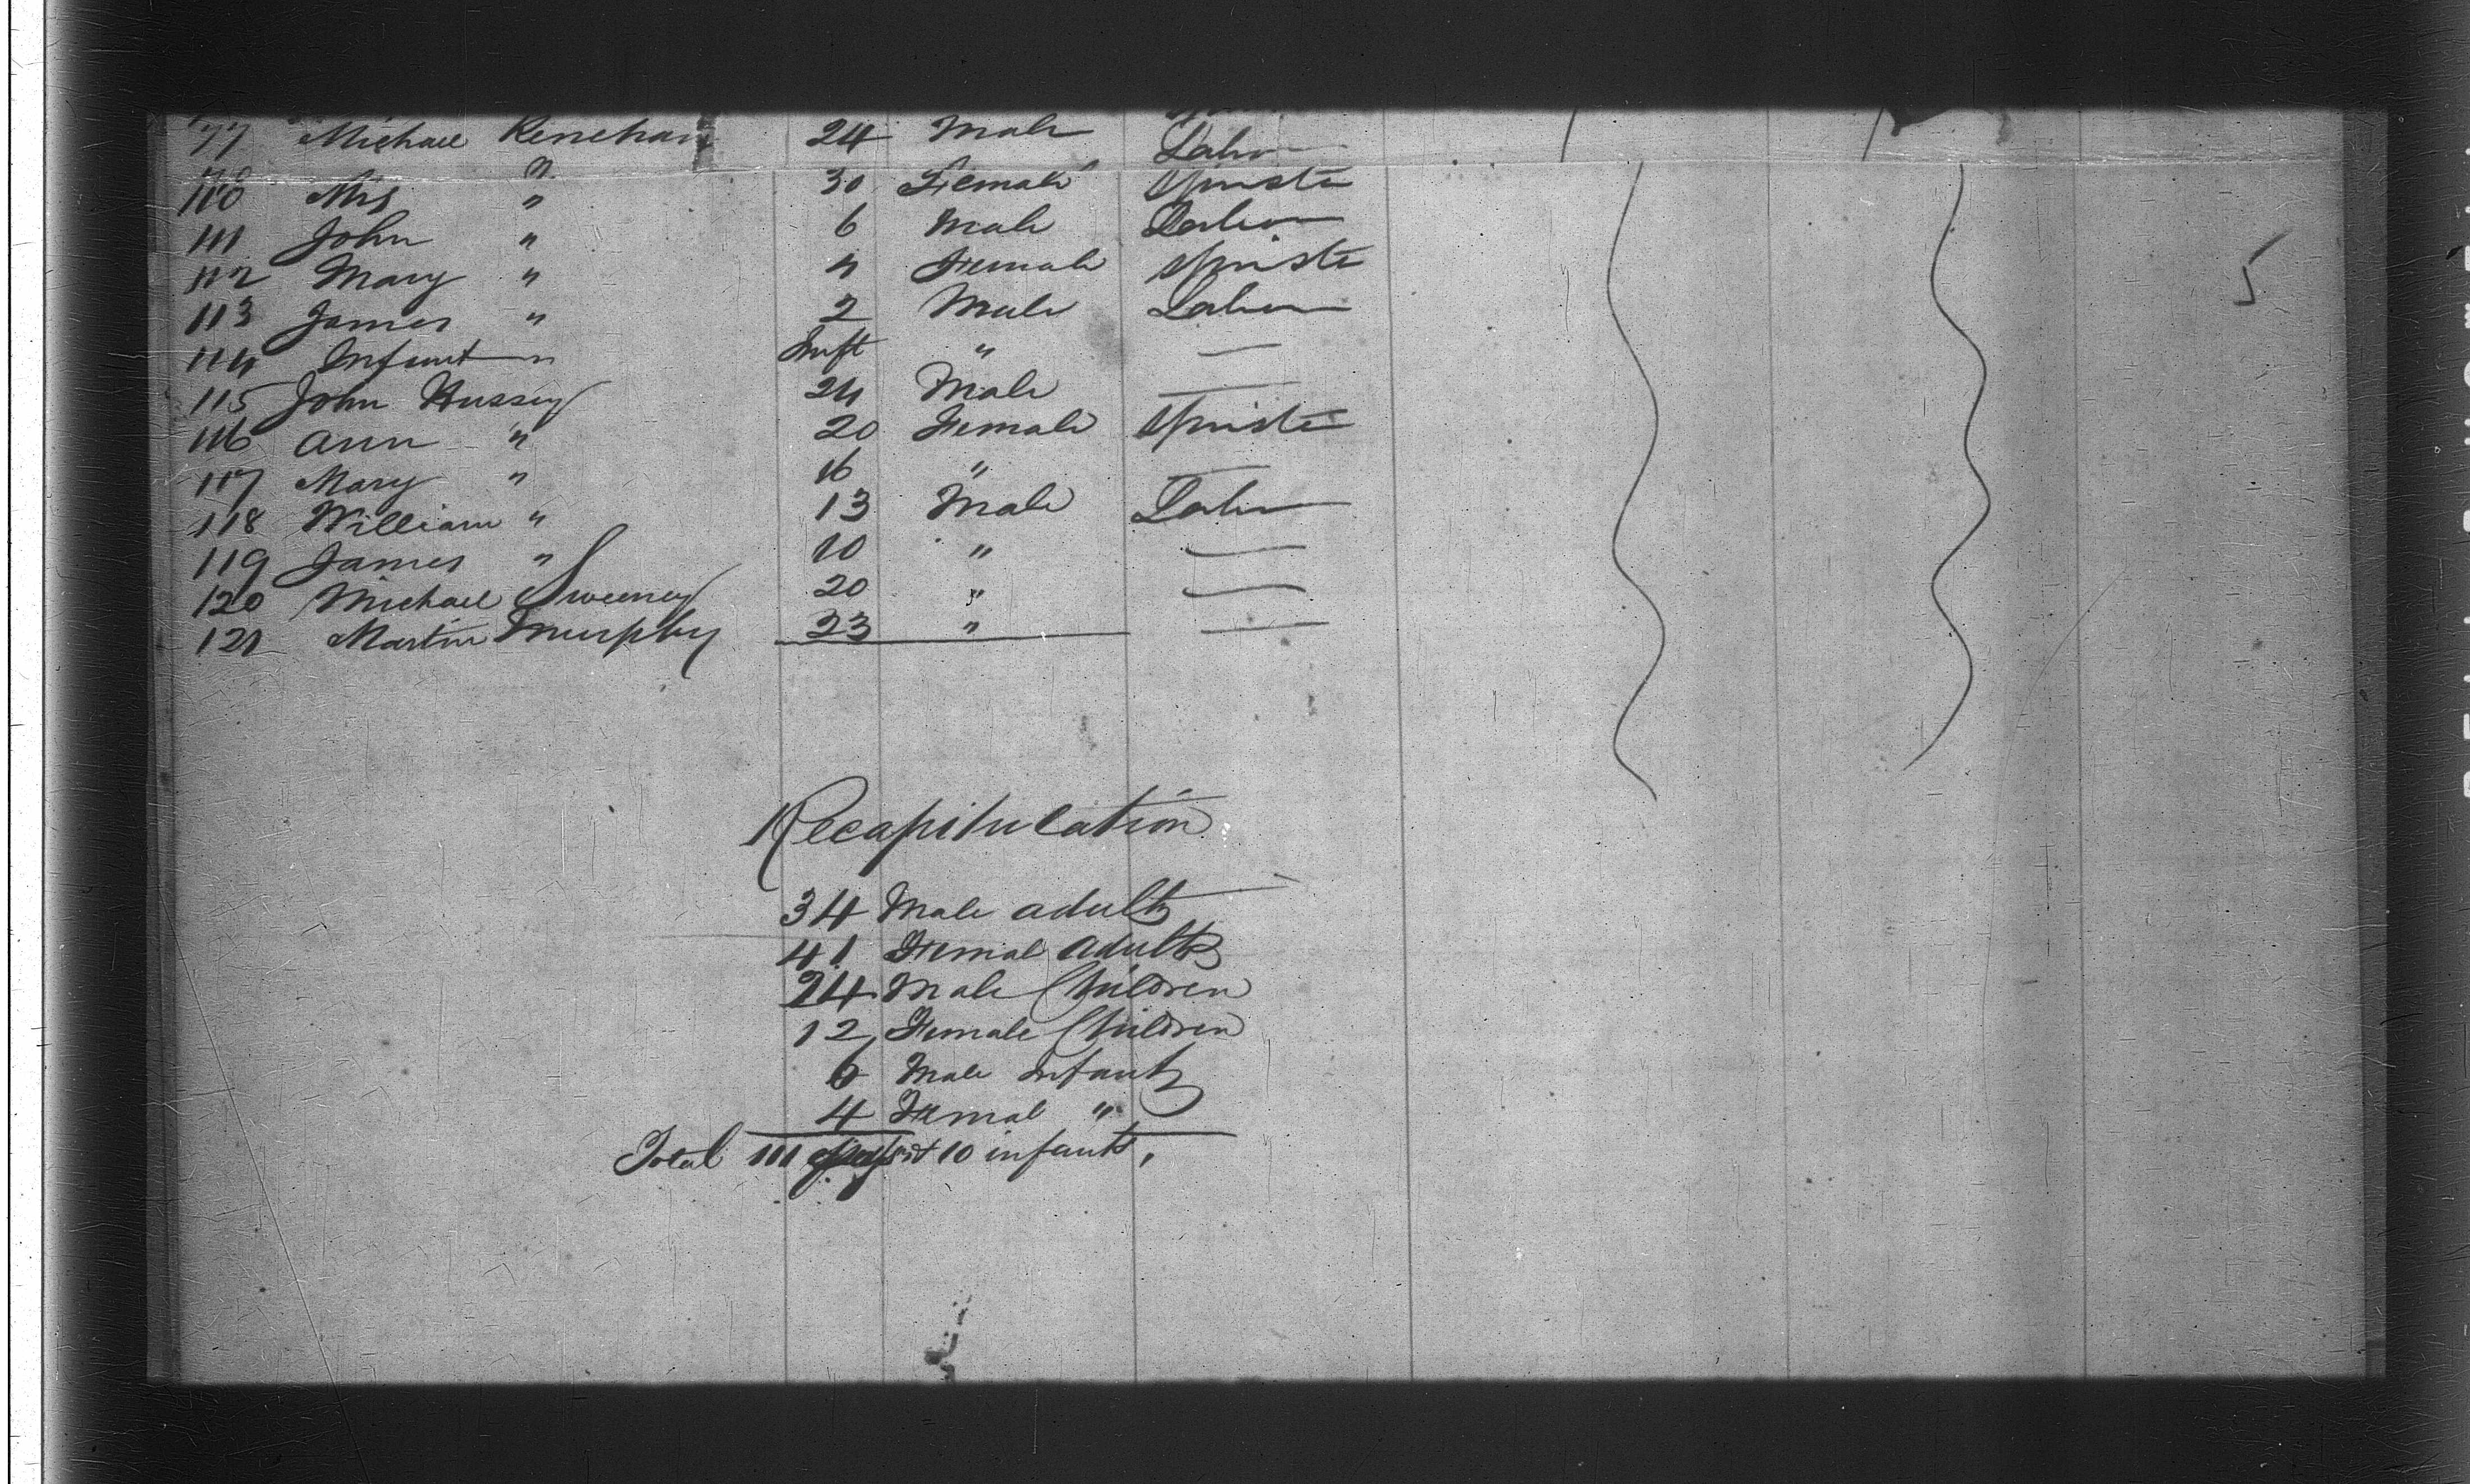 77 Michael Renehan 24 Male Labor
110 Mrs " 30 Female Spinster
111 John " 6 Male Labor
112 Mary " " Female Spinster
113 James " 2 Male Labor
114 Infant " Inft " —
115 John Hussey 24 Male —
116 Ann " 20 Female Spinster
117 Mary " 16 " —
118 William " 13 Male Labor
119 James " 10 " —
120 Michael Sweeney 20 " —
121 Martin Murphy 23 " —
5
Recapitulation
34 Male adults
41 Femal adults
24 Male Children
12 Female Children
6 Male Infants
4 Femal "
Total 111 10 infants,